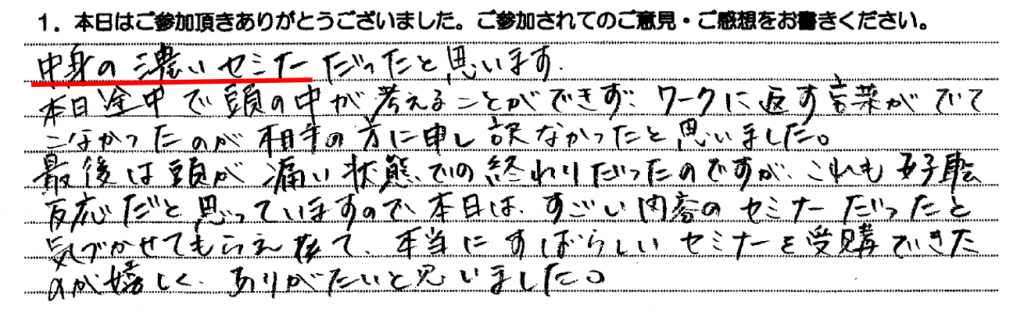 1. 本日はご参加頂きありがとうございました。ご参加されてのご意見・ご感想をお書きください。
中身の濃いセミナーだったと思います。
本日途中で頭の中が考えることができず、ワークに返す言葉がでて
こなかったのが相手の方に申し訳なかったと思いました。
最後は頭が痛い状態での終わりだったのですが、これも好転
反応だと思っていますので、本日は、すごい内容のセミナーだったと
気づかせてもらえて、本当にすばらしいセミナーを受購できた
のが嬉しく、ありがたいと思いました。